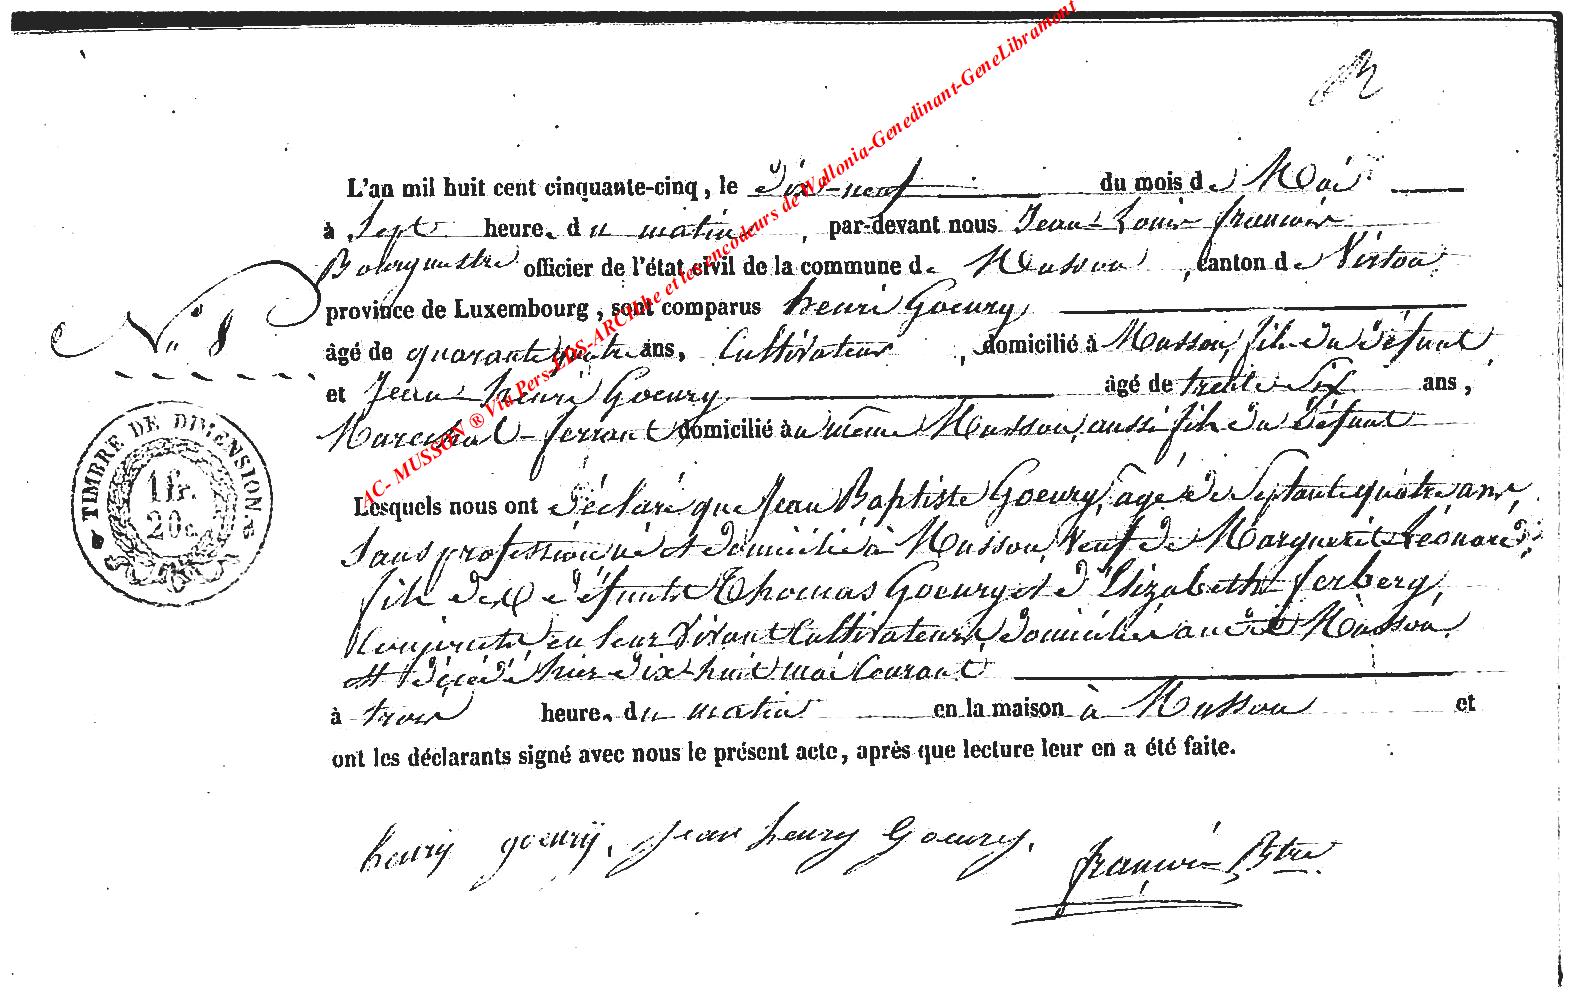 L'an mil huit cent cinquante-cinq, le Dix-neuf du mois de Mai
à Sept heures du matin, par-devant nous Jean-Louis françois
Bourgmestre officier de l'état civil de la commune de Musson, canton de Virton,
province de Luxembourg, sont comparus henri Goeury
N° 8
âgé de quarante quatre ans, Cultivateur, domicilié à Musson, fils du Défunt
et Jean henri Goeury âgé de trente Six ans,
Marechal-ferrant domicilié au même Musson, aussi fils du Défunt
TIMBRE DE DIMENSION.
1 fr.
20 c.
Lesquels nous ont déclaré que Jean Baptiste Goeury, agé de Septante quatre ans,
Sans profession, né et domicilié à Musson, Veuf de Marguerite Léonard,
fils des défunts Thomas Goeury et d'Elizabeth ferberg,
Conjoints en leur Vivant Cultivateurs, domiciliés audit Musson,
est décédé hier dix-huit mai Courant
à trois heures du matin en la maison à Musson et
ont les déclarants signé avec nous le présent acte, après que lecture leur en a été faite.
henry goeurÿ, Jean henry Goeury.
françois Bstre.
AC- MUSSON ® Via Pers-EDS-ARCHbe et les encodeurs de Wallonia-Genedinant-GeneLibramont